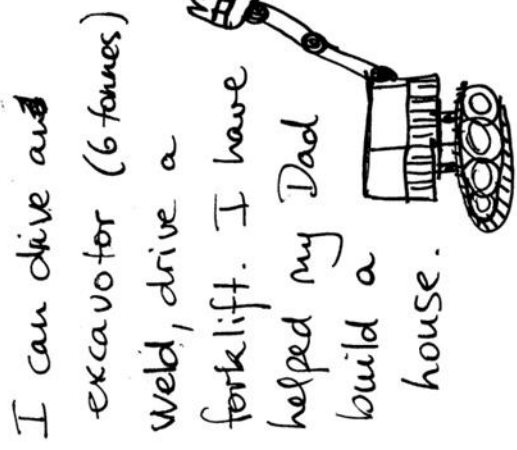 I can drive an
excavotor (6 tonnes)
weld, drive a
forklift. I have
helped my Dad
build a
house.